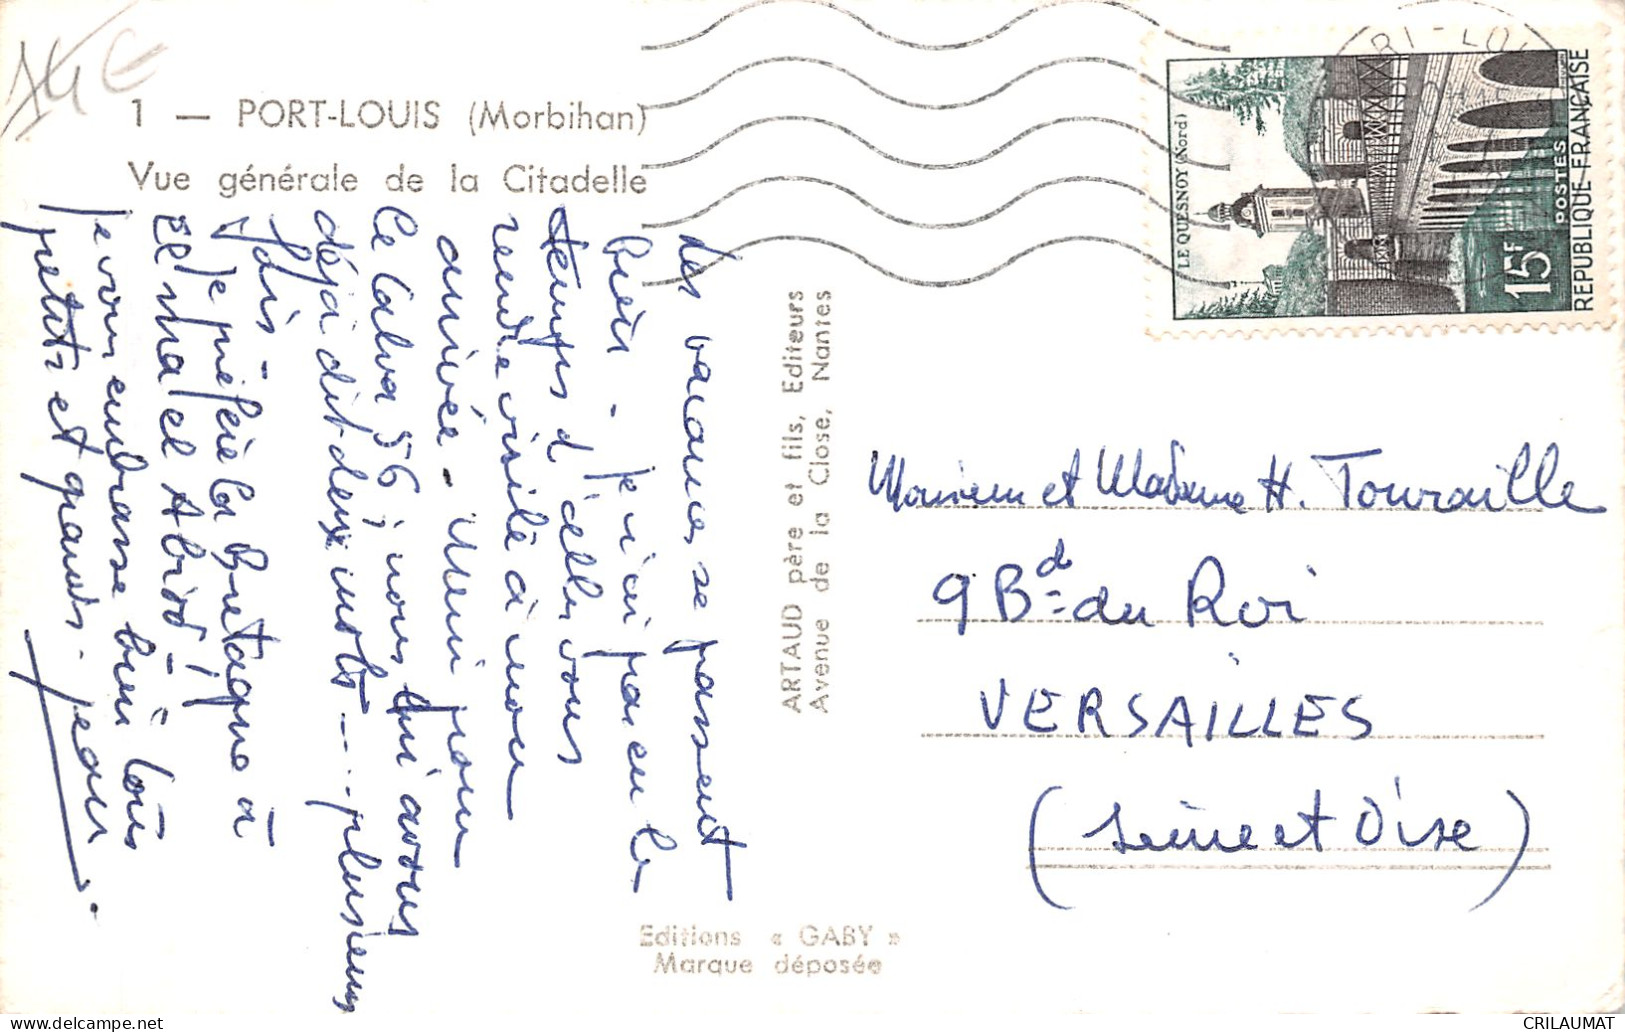 14€
1 — PORT-LOUIS (Morbihan)
Vue générale de la Citadelle
Les vacances se passent
bien - Je n'ai pas eu le
temps d'aller vous
rendre visite à mon
arrivée - Merci pour
le Calva 56; nous lui avons
déjà dit deux mots --- plusieurs
fois -
Je préfère la Bretagne à
El Ma el Abiod!
Je vous embrasse bien tous
petits et grands. Jean.
ARTAUD père et fils, Editeurs
Avenue de la Close, Nantes
Editions « GABY »
Marque déposée
LE QUESNOY (Nord)
15F
POSTES
REPUBLIQUE FRANÇAISE
Monsieur et Madame H. Touraille
9 Bd du Roi
VERSAILLES
(Seine et Oise)
CRILAUMAT